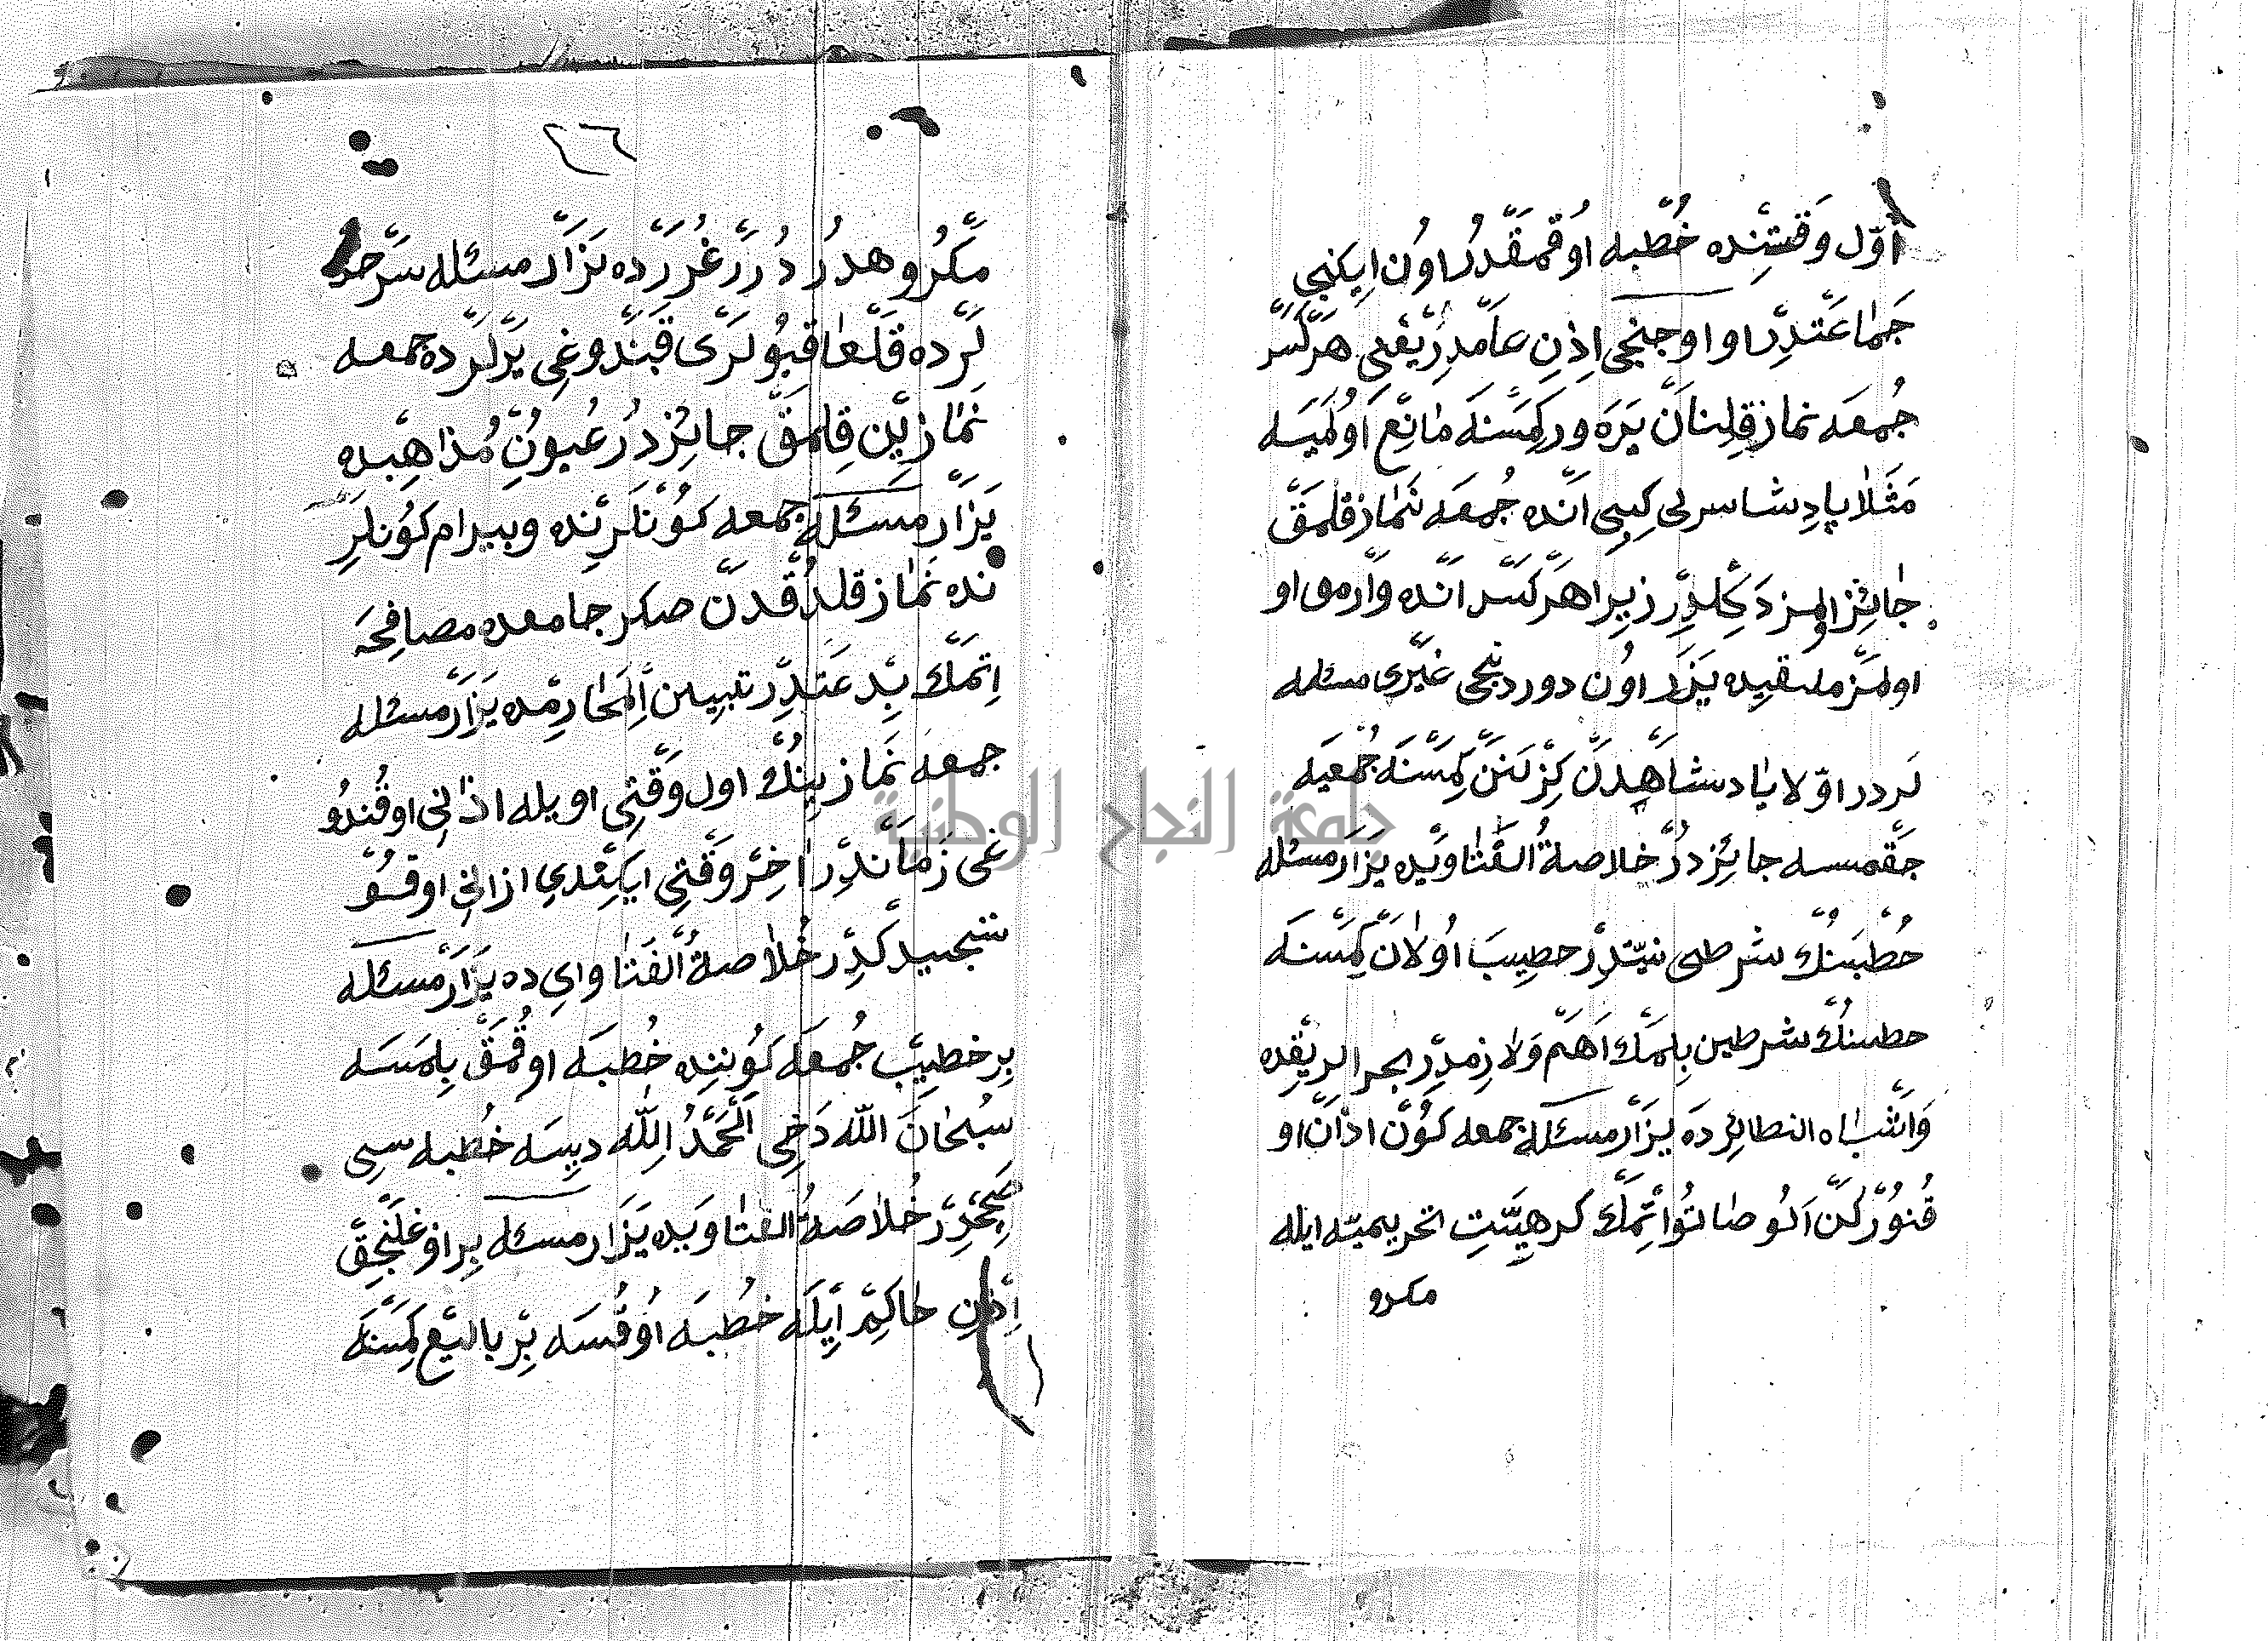 اوّل وَقتِنده خُطبه اوُقمَقدُر اوُن ايكنجى
جَمَاعَتدِر اوا وجنجى اِذنِ عامدِر يَعْنِى هَركَسَر
جُمعَه نماز قِلِنَان يَرَه وركمَسنَه مَانِع اوُلمَيَسَه
مَثَلا پادِشا سرلى كِبِى انَده جُمعَه نَماز قلمَق
جَائِز اولمز دَكِلدِر زِيرا هَركَسَر اندَه وَارمق او
اولمَز ملتقيده يَزَر اوُن دوردنجى غَيْرِى مسئله
لردر اوّلا پادشَاهِدَن كِزلَنَن كِمسَنَه جُمعَيه
جقمسه جائِزدرُ خلاصةُ الفَتاويده يَزَار مسئله
خُطبَنُك شرطى نيّتدِر خطِيبَ اوُلاَن كِمسَنَه
خطبنُك شرطين بِلمَك اَهَم وَلازِمدِر ابحر الريقِده
وَاَشباه النطائِرده يَزَار مسئله جمعه كوُن اذَان او
قُنوُركَن اَلوُ صَاتوُ اتمَك كرهيَّتِ تحريميّه ايله
مكرو
٢٦
مَكرُو هدرُ دُرَر غُرَرده يَزَار مسئله سَرحد
لَرده قَلْعَا قپُولرَى قپَندوغِى يَرلَرده جمعه
نَمازِين قِلمَق جائِزدُر عُيونِ مُذَاهِبده
يَزَار مسئله جمعه كوُنلَرِنده وبيرام كوُنلرِ
نده نَماز قلدُقدَن صكر جامعده مصافِحَه
اِتمَك بِدعَتدِر تبيين اَلمَحارِمده يَزَار مسئله
جمعه نَمازِينُك اول وَقتِى اويله اذَانِى اوقُندوُ
غى زَمَاندِر اَخِر وَقتِى ايكِندِي ازانِى اوقنُو
نتجيه دكدِر خُلاَصةُ الفَتاواىِ ده يَزَار مسئله
بِر خطِيب جُمعَه كوُنِنِده خُطبَه اوقُمَق بِلمَسَه
سُبحَانَ الله دَخِى اَلحَمدُ اِلله ديِسَه خُطبه سى
صَحِحدِر خُلاصَةُ الفتَاويَده يَزَار مسئله بِر اوغلَنجِق
اِذنِ حَاكِم اَيِلَه خُطبَه اوُقُسَه بِر باليَغ كِمسَنَه